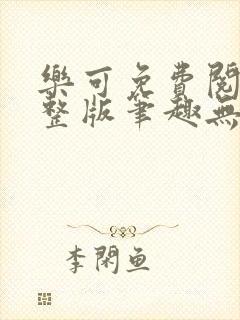 樂可免費閱
整版筆趣無
李閑鱼